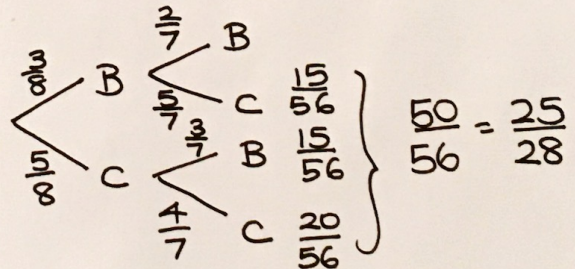 2/7 B
3/8 B
5/7 C 15/56
5/8 C
3/7 B 15/56
4/7 C 20/56
50/56 = 25/28